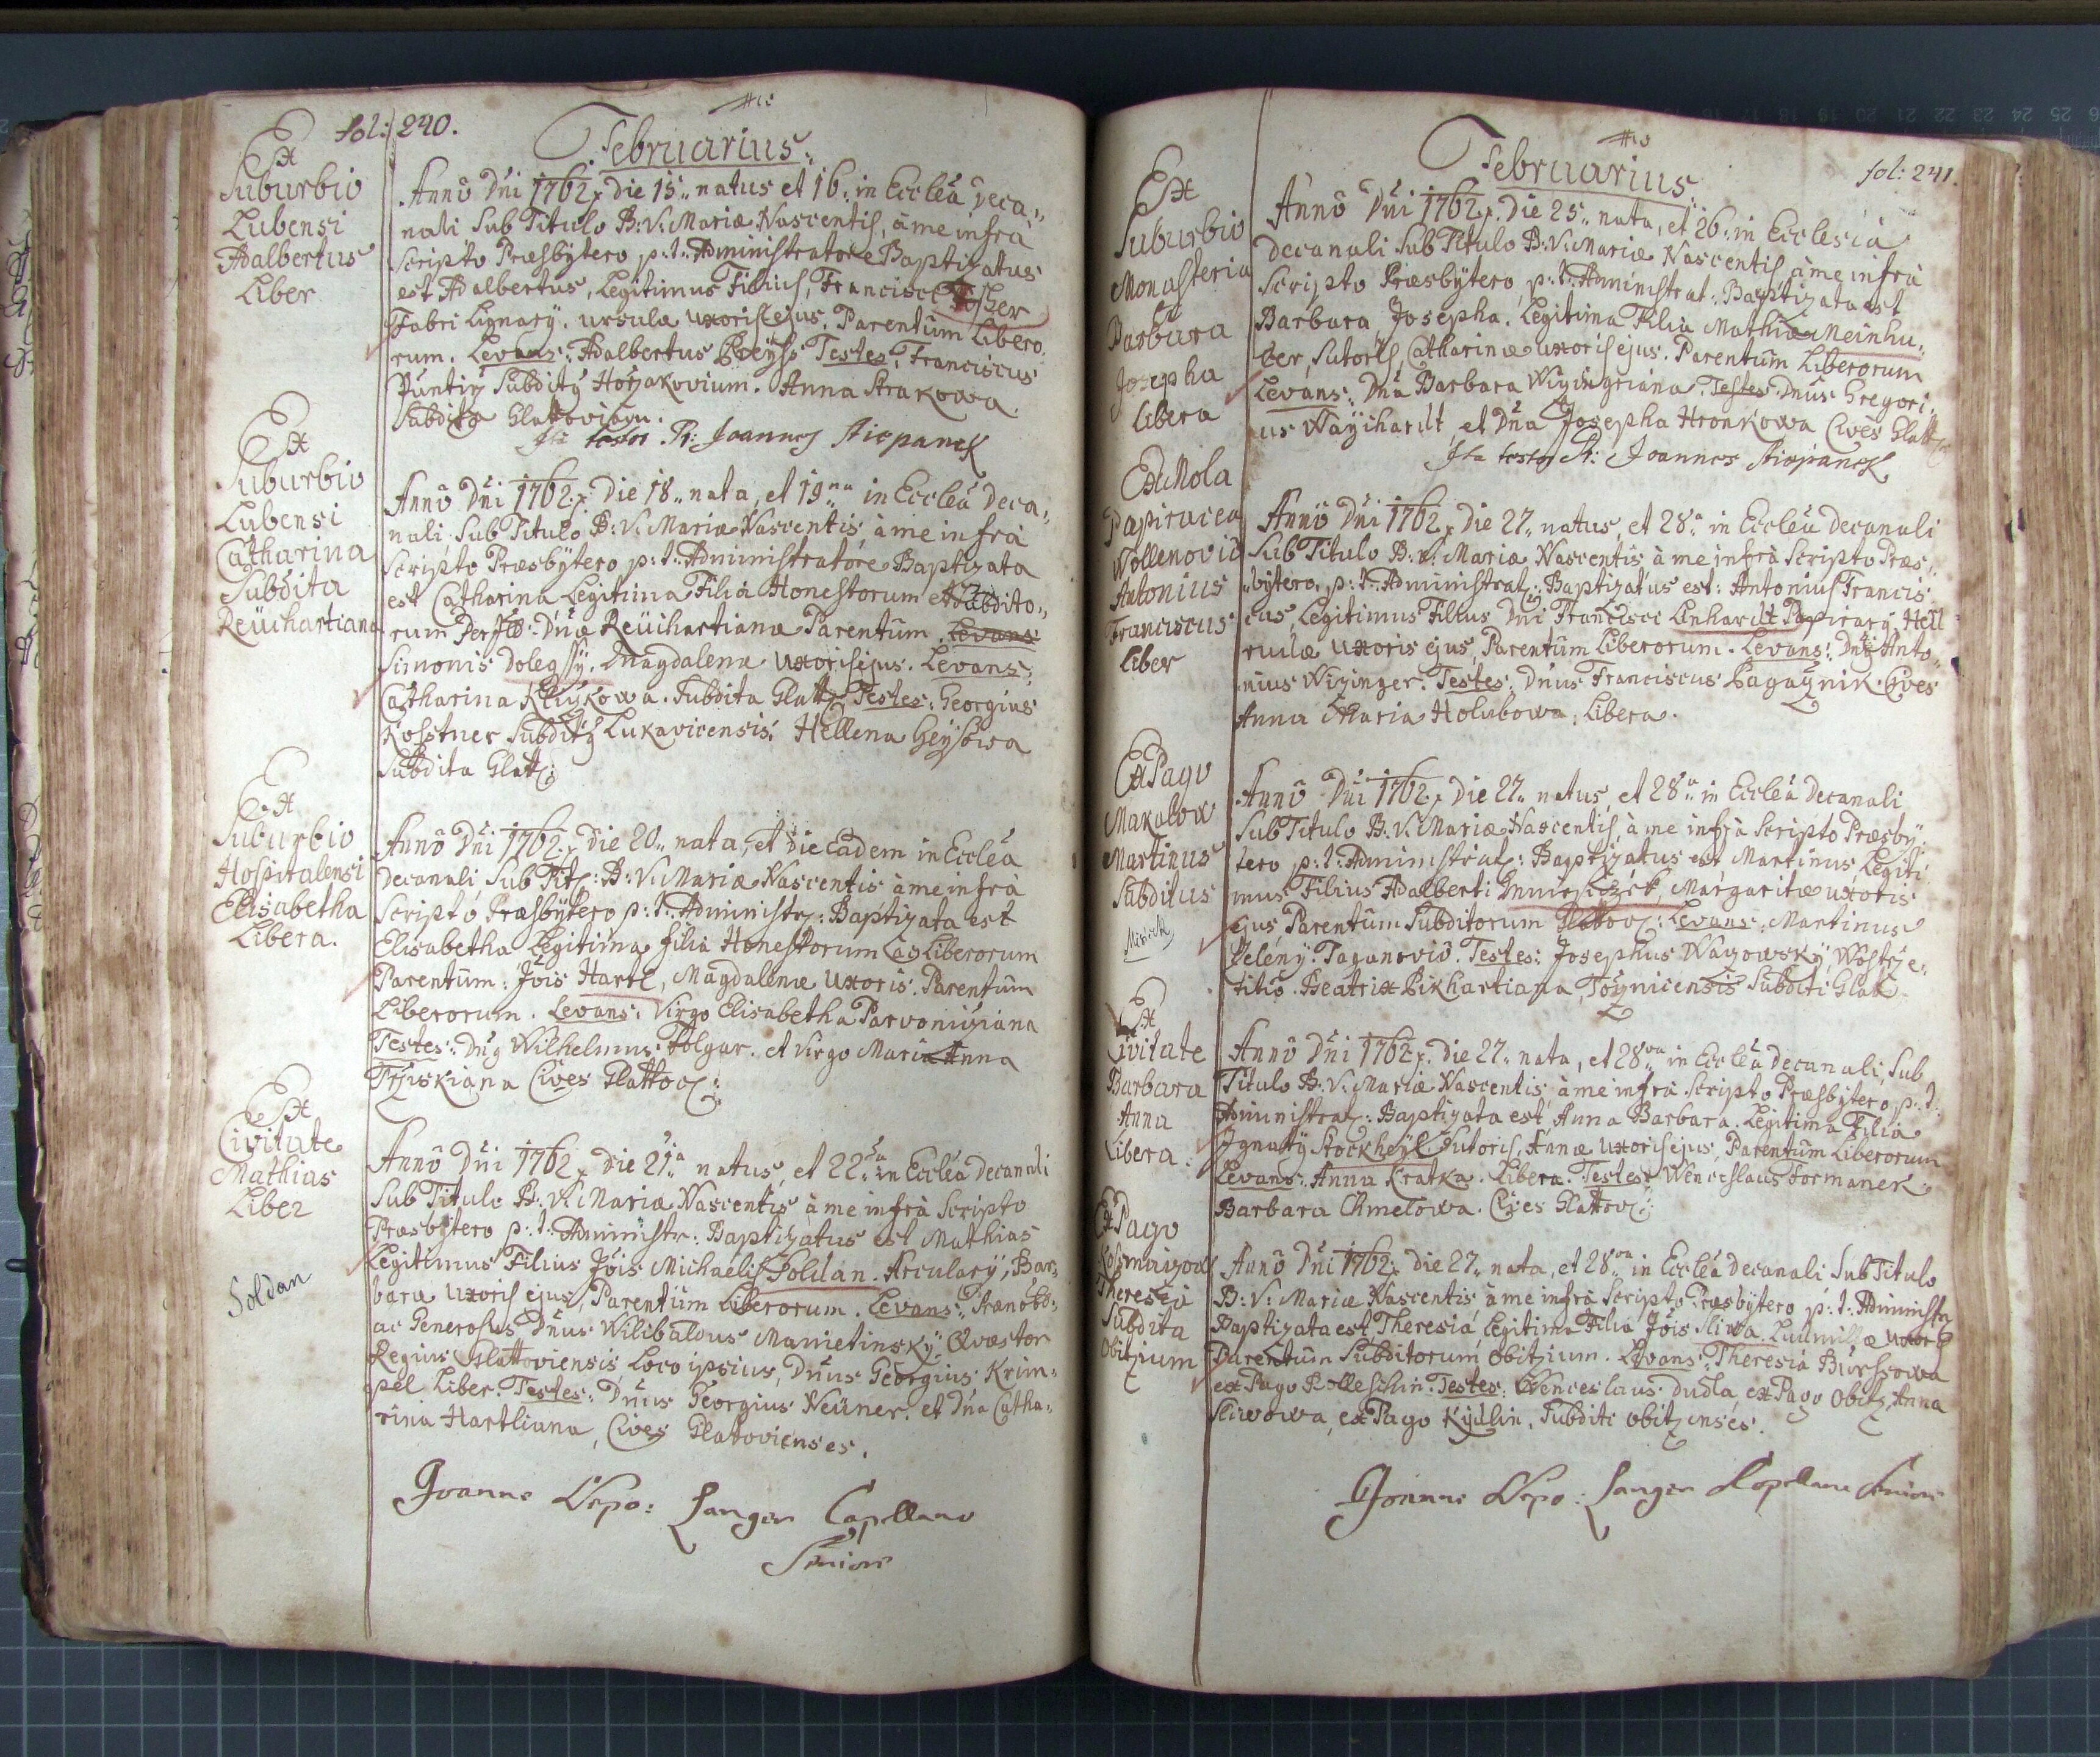 fol: 240.
Februarius.
Ex
Suburbio
Lubensi
Adalbertus
Liber
Anno Dni 1762. Die 15. natus et 16. in Ecclea Deca„
nali Sub Titulo B: V: Mariæ Nascentis, à me infrà
Scripto Præsbytero p: t: Administratore Baptizatus
est Adalbertus, Legitimus Filius, Francisci
Fabri Lignarÿ, Ursulæ uxoris ejus, Parentum Libero„
rum. Levans: Adalbertus Preÿss Testes: Franciscus
Subditÿ Anna Strakowa
Subdita Glattovium.
Ita testor Pr: Joannes Stiepanek
Ex
Suburbio
Lubensi
Catharina
Subdita
Reüchartiana
Anno Dni 1762. Die 18. nata, et 19na in Ecclea Deca„
nali Sub Titulo B: V: Mariæ Nascentis, à me infrà
Scripto Præsbytero p: t: Administratore Baptizata
est Catharina Legitima Filia Honestorum ac Subdito„
rum Dnæ Reüchartianæ Parentum Levans
Simonis Dolegssÿ, Magdalenæ uxoris ejus. Levans:
Catharina Subdita Glatt: Testes: Georgius
Kosstner Subditÿ Lukavicensis. Hellena Geÿsowa
Subdita Glatt:
Ex
Suburbio
Hospitalensi
Elisabetha
Libera.
Anno Dni 1762. Die 20. nata, et die Eadem in Ecclea
Decanali Sub Tit: B: V: Mariæ Nascentis à me infrà
Scripto Præsbytero p: t: Administr: Baptizata est
Elisabetha Legitima filia Honestorum ac Liberorum
Parentum: Jois Hartl, Magdalenæ Uxoris. Parentum
Liberorum. Levans: Virgo Elisabetha Parvoniziana
Testes: Dnÿ Wilhelmus Folgar. et Virgo Maria Anna
Trziskiana Cives Glattov:
Ex
Civitate
Mathias
Liber
Soldan
Anno Dni 1762. Die 21a natus, et 22da in Ecclea Decanali
Sub Titulo B: V: Mariæ Nascentis à me infrà Scripto
Præsbytero p: t: Administr: Baptizatus est Mathias
Legitimus Filius Jois Michaelis Soldan. Arcularÿ, Bar„
baræ Uxoris ejus, Parentum Liberorum. Levans:
ac Generosus Dnus Wilibaldus Manietinskÿ Qvæstor
Regius Glattoviensis, Loco ipsius, Dnus Georgius Krim„
pel Liber. Testes: Dnus Georgius Neüner. et Dna Catha„
rina Hartliana, Cives Glattovienses.
Joanne Nepo: Langer Capellano
Seniore
Februarius.
fol: 241.
Ex
Suburbio
Monasteria
Barbara
Josepha
Libera
Anno Dni 1762. Die 25. nata, et 26. in Ecclesia
Decanali Sub Titulo B: V: Mariæ Nascentis à me infrà
Scripto Præsbytero p: t: Administrat: Baptizata est
Barbara, Josepha. Legitima Filia Mathiæ Meinhu„
ber, Sutoris, Catharinæ uxoris ejus. Parentum Liberorum
Levans: Dna Barbara Wizingriana. Testes Dnus Gregori„
us Waÿihardt, et Dna Josepha Hronkowa Cives Glatt:
Ita testor Pr: Joannes Stiepanek
Ex Mola
Papiracea
Wollenovii
Antonius
Franciscus
Liber
Anno Dni 1762. Die 27. natus, et 28.a in Ecclea Decanali
Sub Titulo B: V: Mariæ Nascentis à me infrà Scripto Præs„
bytero, p: t: Administrat: Baptizatus est: Antonius Francis„
cus, Legitimus Filius Dni Francisci Linhardt Papirarÿ,
uxoris ejus, Parentum Liberorum. Levans: Dnÿ Anto„
nius Wizinger. Testes: Dnus Franciscus Cives
Anna Maria Holubowa, Libera.
Ex Pago
Makalow
Martinus
Subditus
Anno Dni 1762. Die 27. natus, et 28.a in Ecclea Decanali
Sub Titulo B: V: Mariæ Nascentis, à me infrà Scripto Præsby„
tero p: t: Administrat: Baptizatus est Martinus, Legiti„
mus Filius Adalberti Margaritæ uxoris
ejus, Parentum Subditorum Glattov: Levans: Martinus
Zelenÿ. Testes: Josephus Wazowskÿ,
Beatrix Pikhartiana, Subditi Glatt
Ex
Civitate
Barbara
Anna
Libera.
Anno Dni 1762. Die 27. nata, et 28va in Ecclea Decanali, Sub
Titulo B: V: Mariæ Nascentis, à me infrà Scripto Præsbytero p: t:
Administrat: Baptizata est, Anna Barbara. Legitima Filia
Ignatÿ Stockheÿl Sutoris, Annæ uxoris ejus, Parentum Liberorum
Levans: Anna Kratka. Libera. Testes Wenceslaus Formanek.
Barbara Chmelowa. Cives Glattov:
Ex Pago
Theresia
Subdita
Obitzium
Anno Dni 1762. Die 27. nata, et 28va in Ecclea Decanali Sub Titulo
B: V: Mariæ Nascentis à me infrà Scripto Præsbytero p: t: Administr
Baptizata est, Theresia, Legitima Filia Jois Sliwa. Ludmillæ uxoris
Parentum Subditorum Obitzium. Levans: Theresia Burssowa
ex Pago Testes: Wenceslaus Dudla, ex Pago Obitz, Anna
Sliwowa, ex Pago Kÿdlin, Subditi Obitzenses.
Joanne Nepo: Langer Capellano Seniore